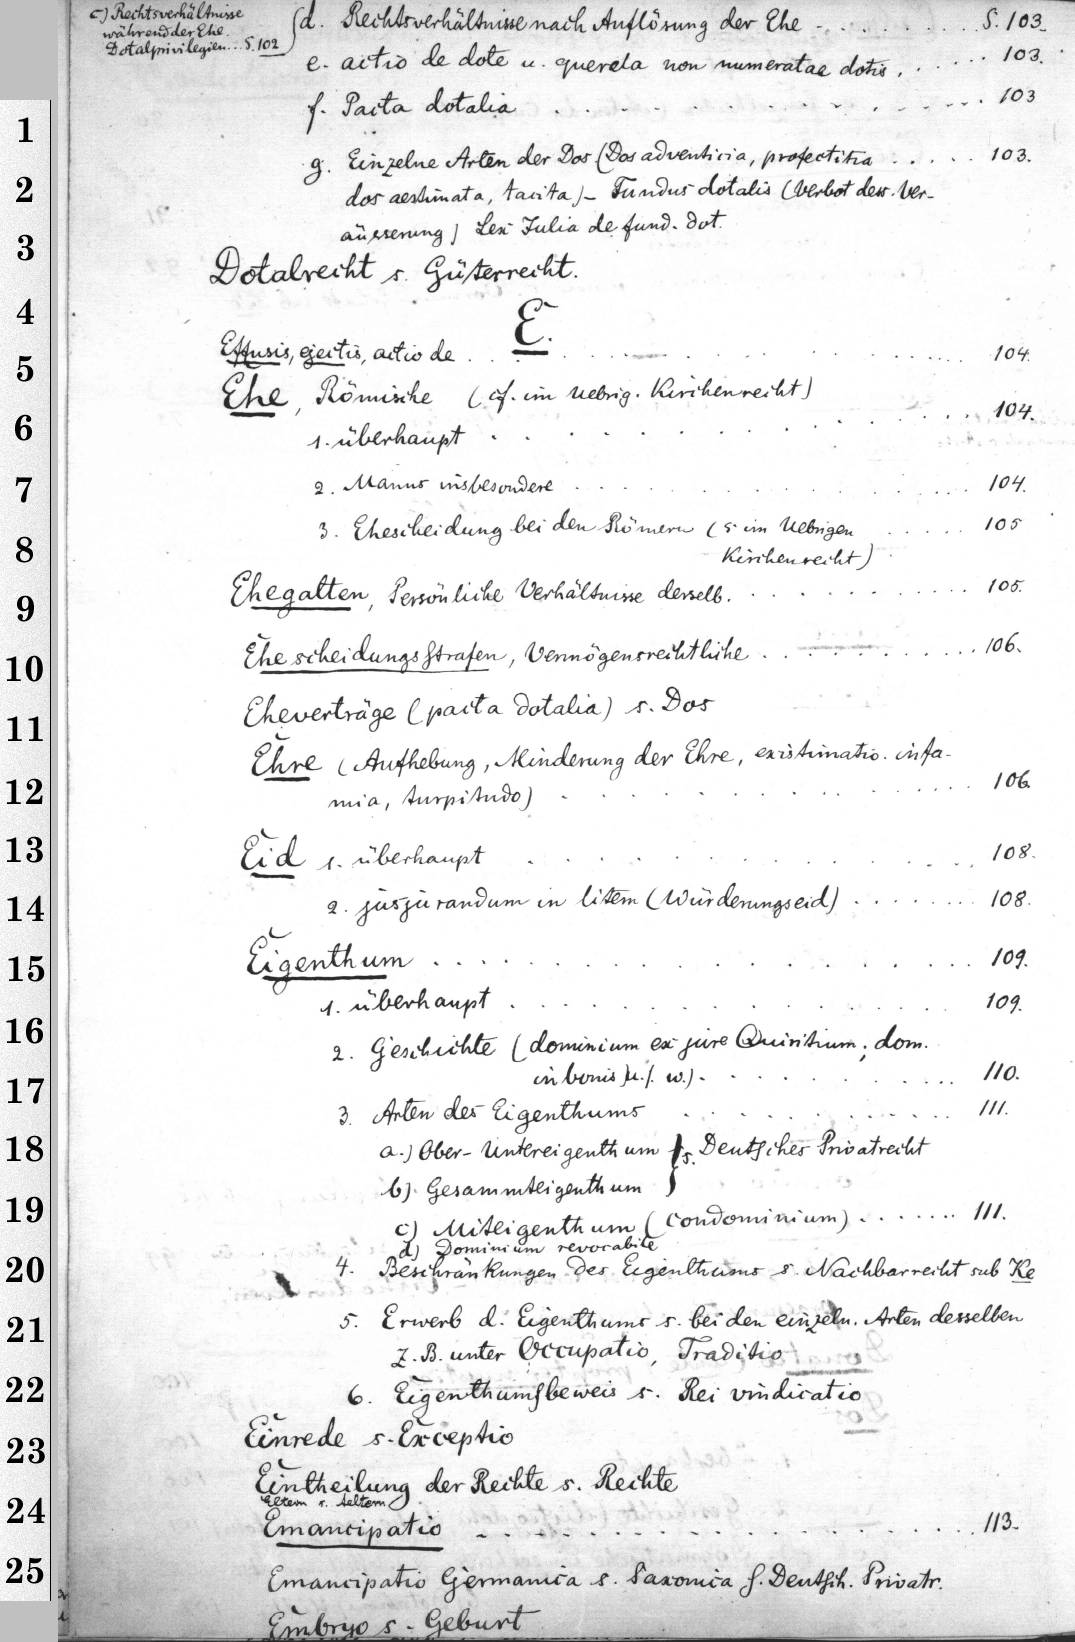 c) Rechtsverhältnisse
während der Ehe.
Dotalprivilegien... S. 102
d. Rechtsverhältnisse nach Auflösung der Ehe . . . . . . . . . S. 103.
e. actio de dote u. querela non numeratae dotis . . . . . . 103.
f. Pacta dotalia . . . . . . . . . . . . . 103
g. Einzelne Arten der Dos (Dos adventicia, profectitia . . . . . 103.
dos aestimata, tacita) – Fundus dotalis (Verbot dess. Ver-
äusserung) Lex Julia de fund. dot.
Dotalrecht s. Güterrecht.
E.
Effusis, ejectis, actio de . . . . . . . . . . . 104.
Ehe, Römische (cf. im Uebrig. Kirchenrecht)
1. überhaupt . . . . . . . . . . . . 104.
2. Manus insbesondere . . . . . . . . . . . 104.
3. Ehescheidung bei den Römern (s. im Uebrigen . . . . . 105
Kirchenrecht)
Ehegatten, Persönliche Verhältnisse derselb. . . . . . . . . . . 105.
Ehescheidungsstrafen, Vermögensrechtliche . . . . . . . . . . 106.
Eheverträge (pacta dotalia) s. Dos
Ehre (Aufhebung, Minderung der Ehre, existimatio. infa-
mia, turpitudo) . . . . . . . . . . . . 106.
Eid 1. überhaupt . . . . . . . . . . . . 108.
2. jusjurandum in litem (Würderungseid) . . . . . . . . 108.
Eigenthum . . . . . . . . . . . . . . 109.
1. überhaupt . . . . . . . . . . . . 109.
2. Geschichte (dominium ex jure Quiritium; dom.
in bonis) u. s. w.) . . . . . . . . . . . 110.
3. Arten des Eigenthums . . . . . . . . . . . 111.
a.) Ober- Untereigenthum } s. Deutsches Privatrecht
b). Gesammteigenthum
c) Miteigenthum (condominium) . . . . . . . 111.
d) Dominium revocabile
4. Beschränkungen des Eigenthums s. Nachbarrecht sub Ke
5. Erwerb d. Eigenthums s. bei den einzeln. Arten desselben
z. B. unter Occupatio, Traditio
6. Eigenthumsbeweis s. Rei vindicatio
Einrede s. Exceptio
Eintheilung der Rechte s. Rechte
Eltern s. Aeltern
Emancipatio . . . . . . . . . . . . . . 113.
Emancipatio Germanica s. Saxonica s. Deutsch. Privatr.
Embryo s. Geburt
1
2
3
4
5
6
7
8
9
10
11
12
13
14
15
16
17
18
19
20
21
22
23
24
25